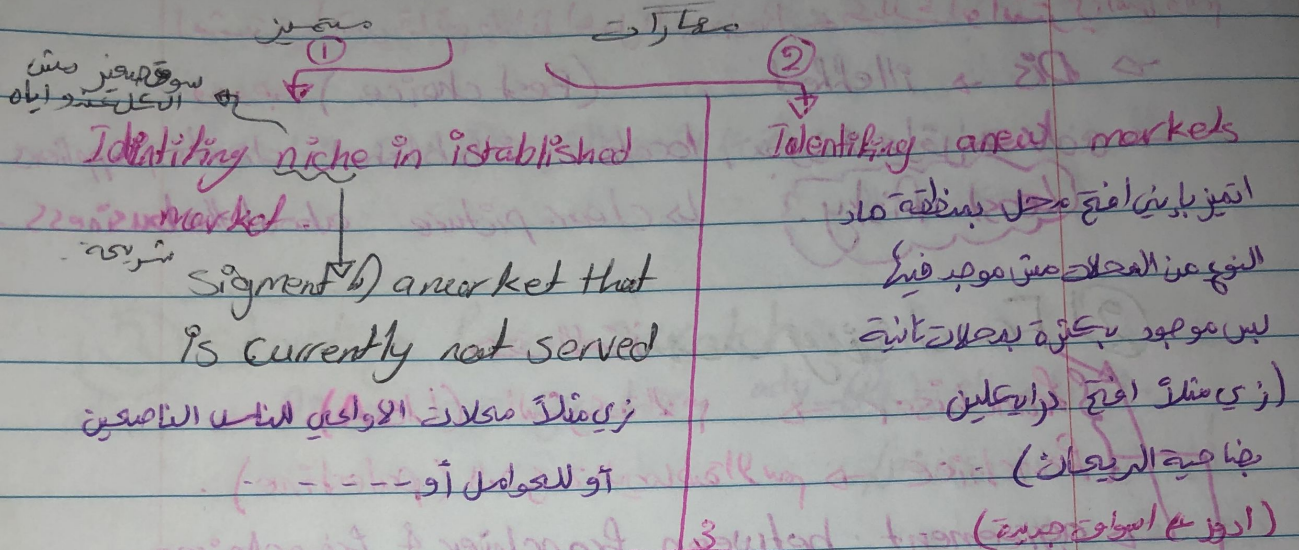 متميز
مهارات
① ②
سوق صغير مش
الكل عنده اياه
Identifing niche in istablished
market.
شريحة
sigment of a market that
is currently not served
زي مثلاً محلات الاواعي للناس الناصحين
أو للحوامل أو - - - - -
Identifing a new markets
اتميز بأني افتح محل بمنطقة هاد
النوع من المحلات مش موجود فيها
بس موجود بكثرة بمحلات ثانية
(زي مثلاً افتح دراي كلين
بضاحية الريحان)
(ادور ع اسواق جديدة)